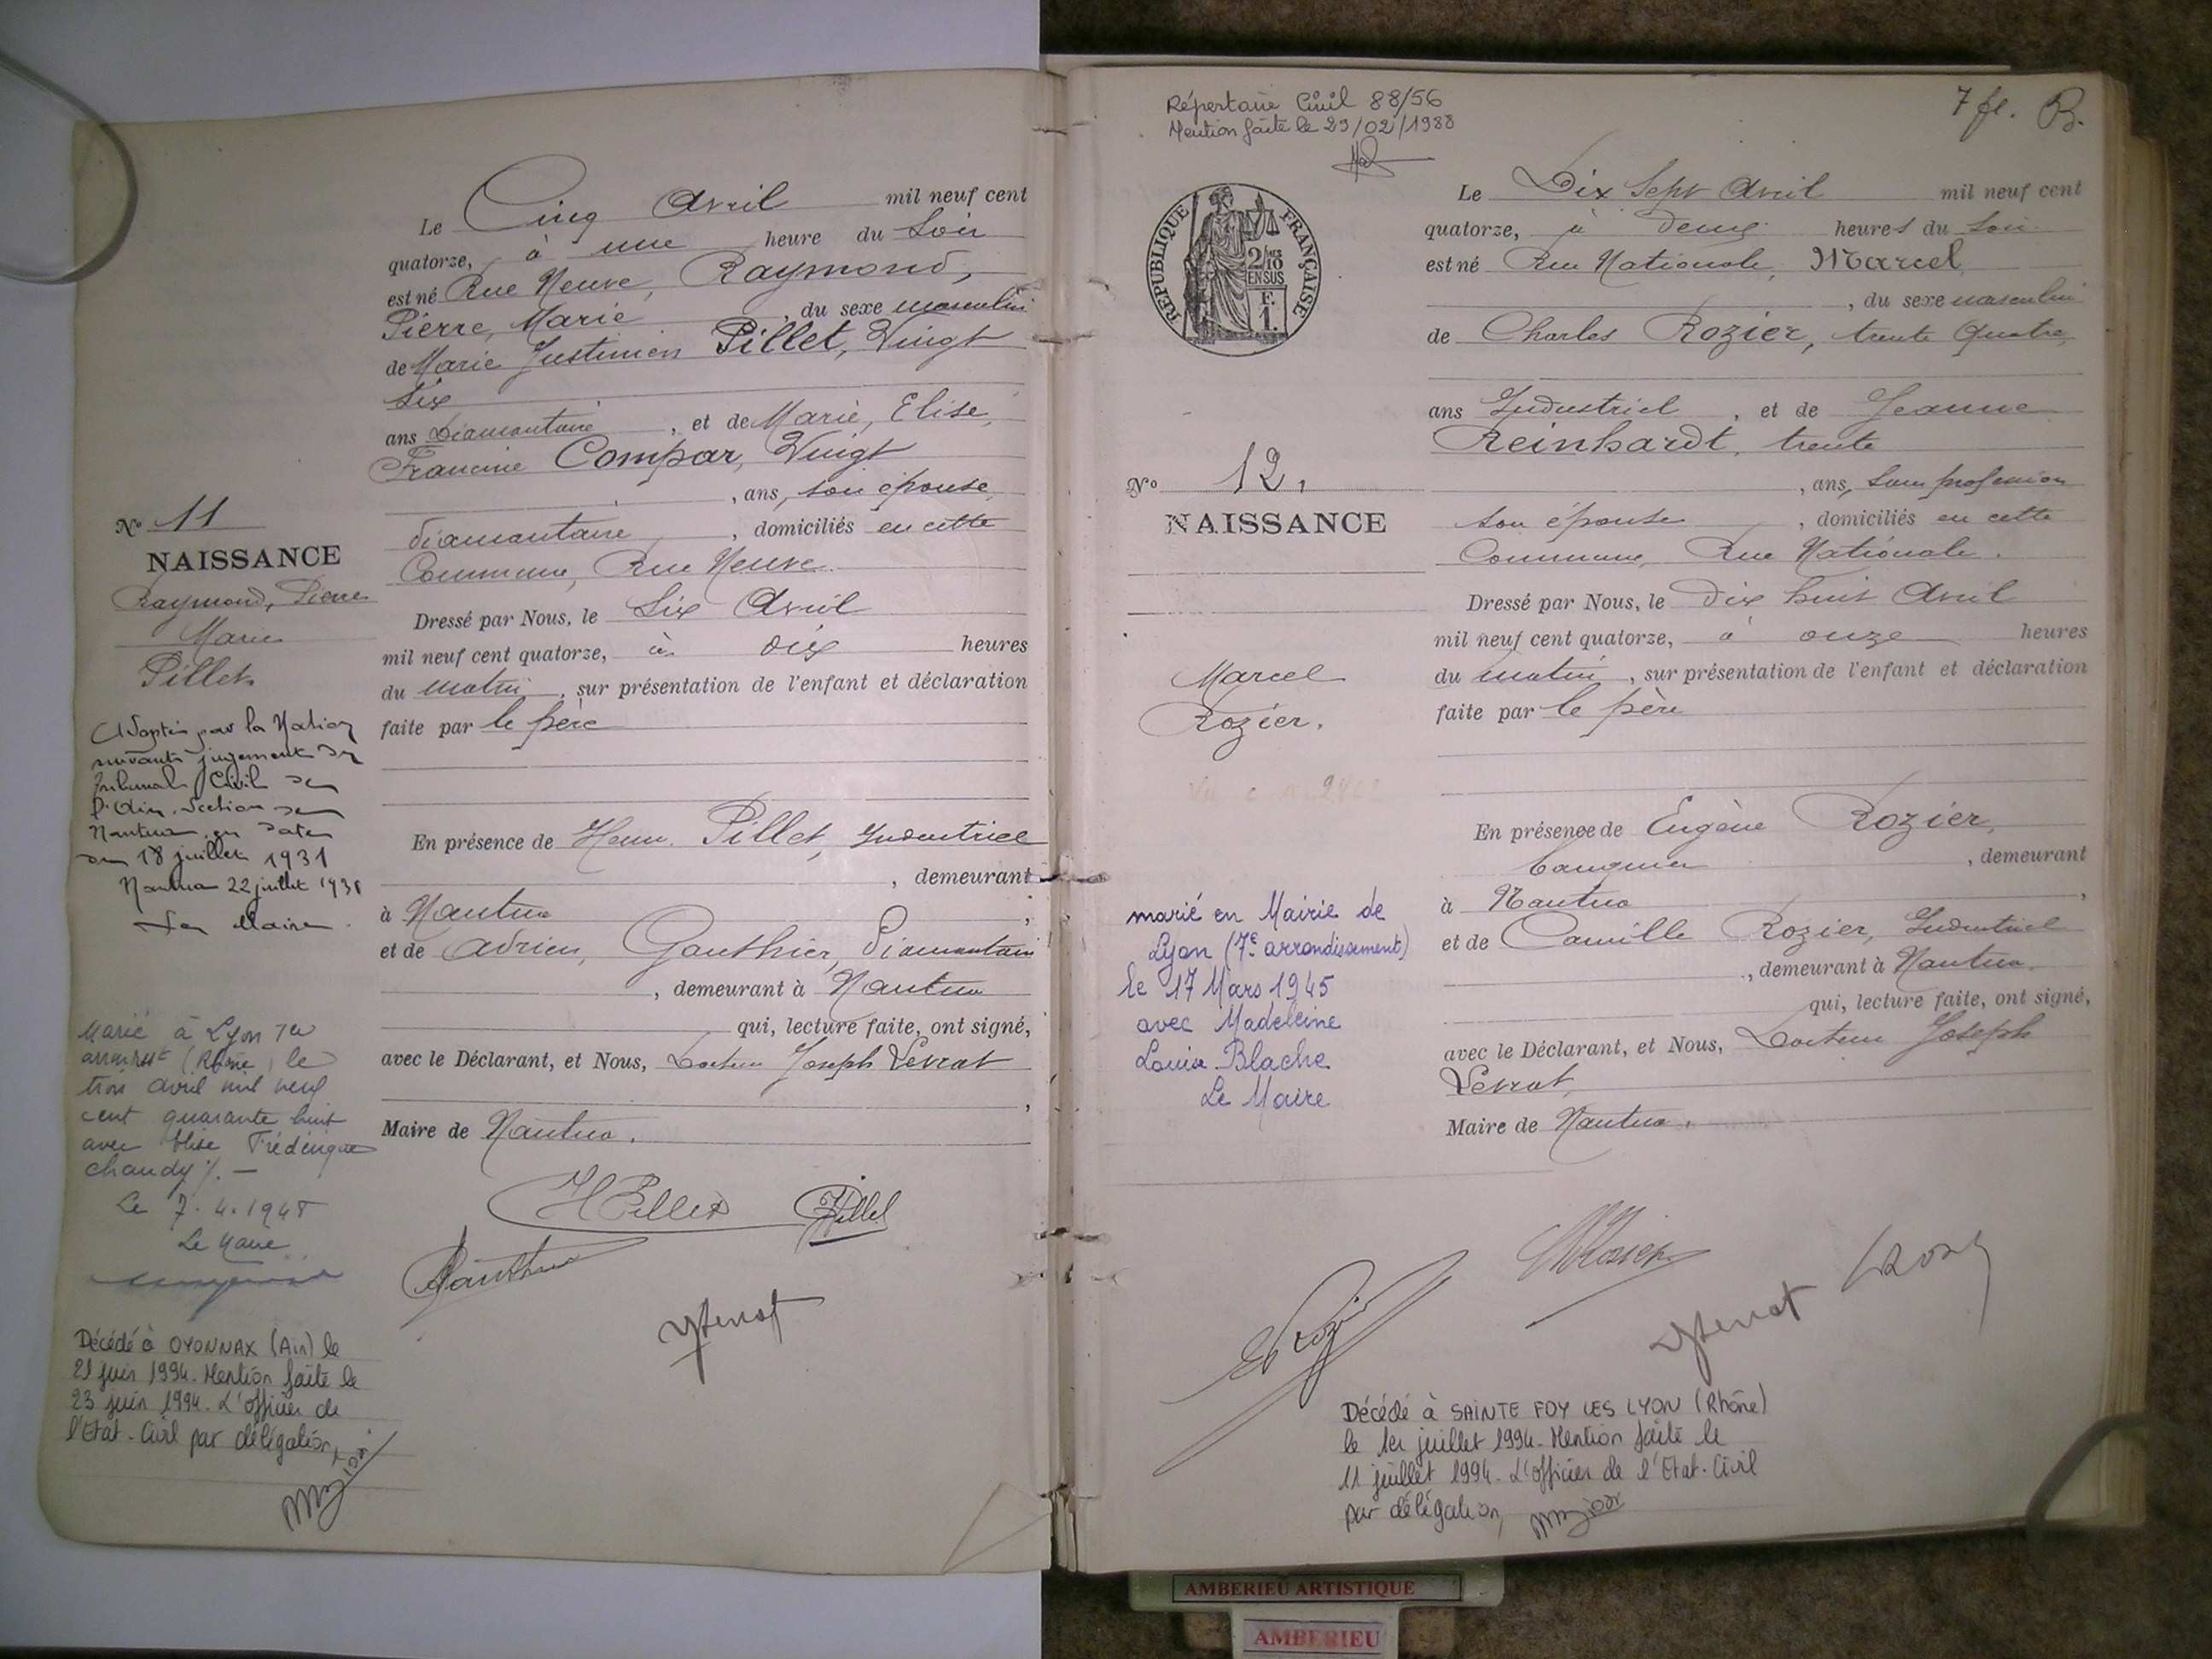 Le Cinq Avril mil neuf cent
quatorze, à une heure du Soir
est né Rue Neuve, Raymond,
Pierre, Marie, du sexe masculin
de Marie Justinien Pillet, Vingt
Six
ans Diamantaire, et de Marie, Elise,
Francine Compar, Vingt
, ans, son épouse,
diamantaire, domiciliés en cette
Commune, Rue Neuve.
Dressé par Nous, le Six Avril
mil neuf cent quatorze, à dix heures
du matin, sur présentation de l'enfant et déclaration
faite par le père
En présence de Henri Pillet, Industriel
, demeurant
à Nantua,
et de Adrien, Gauthier, Diamantaire
, demeurant à Nantua
qui, lecture faite, ont signé,
avec le Déclarant, et Nous, Docteur Joseph Levrat
,
Maire de Nantua.
HPillet Pillet
Gauthier
No 11
NAISSANCE
Raymond, Pierre
Marie
Pillet
Adopté par la Nation
suivant jugement du
Tribunal Civil de
l'Ain, Section de
Nantua, en date
du 18 juillet 1931
Nantua 22 juillet 1931
Le Maire.
Marié à Lyon 7e
arrondt (Rhône) le
trois avril mil neuf
cent quarante huit
avec Elise Frédérique
Chaudy ./. —
Le 7.4.1948
Le Maire
Décédé à OYONNAX (Ain) le
21 juin 1994. Mention faite le
23 juin 1994. L'officier de
l'Etat-Civil par délégation,
Répertoire Civil 88/56
Mention faite le 29/02/1988
7 fl. B.
RÉPUBLIQUE FRANÇAISE
2/10
EN SUS
F.
1.
Le Dix Sept Avril mil neuf cent
quatorze, à deux heures du Soir
est né Rue Nationale, Marcel
, du sexe masculin
de Charles Rozier, trente quatre,
ans Industriel, et de Jeanne
Reinhardt, trente
, ans, sans profession
son épouse, domiciliés en cette
Commune, Rue Nationale.
Dressé par Nous, le dix huit Avril
mil neuf cent quatorze, à onze heures
du matin, sur présentation de l'enfant et déclaration
faite par le père
En présence de Eugène Rozier,
banquier, demeurant
à Nantua,
et de Camille Rozier, Industriel
, demeurant à Nantua
qui, lecture faite, ont signé,
avec le Déclarant, et Nous, Docteur Joseph
Levrat,
Maire de Nantua.
No 12,
NAISSANCE
Marcel
Rozier.
marié en Mairie de
Lyon (7e arrondissement)
le 17 Mars 1945
avec Madeleine
Louise Blache
Le Maire
Décédé à SAINTE FOY LES LYON (Rhône)
le 1er juillet 1994. Mention faite le
11 juillet 1994. L'officier de l'Etat-Civil
par délégation,
AMBERIEU ARTISTIQUE
AMBERIEU